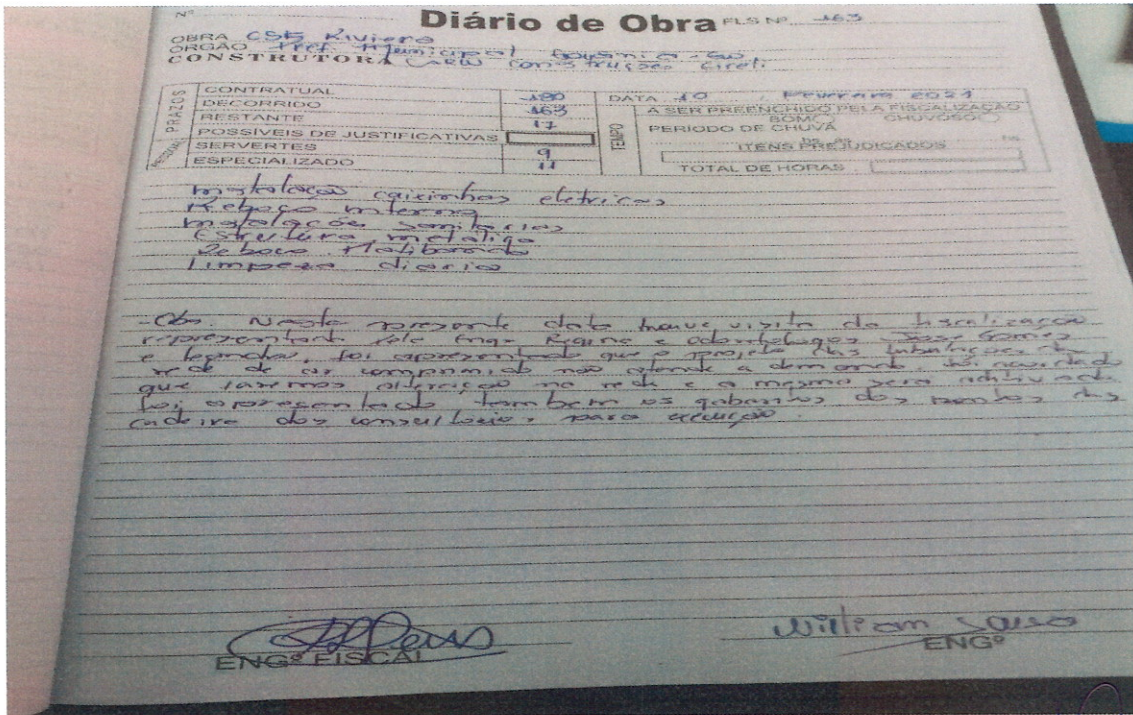 Nº
Diário de Obra FLS Nº 163
OBRA CSF Riviera
ÓRGÃO Pref. Municipal Goiânia - Go
CONSTRUTORA Construções Eireli
PRAZOS
CONTRATUAL 180
DECORRIDO 163
RESTANTE 17
POSSÍVEIS DE JUSTIFICATIVAS
SERVERTES 9
ESPECIALIZADO 11
TEMPO
DATA 10 Fevereiro 2021
A SER PREENCHIDO PELA FISCALIZAÇÃO
BOM CHUVOSO
PERIODO DE CHUVA
hs às hs
ITENS PREJUDICADOS
TOTAL DE HORAS
instalação caixinhas eletricas
Reboco interno
instalações sanitarias
Estrutura metalica
Reboco
Limpeza diaria
-Obs. Nesta presente data houve visita da fiscalização
representant pela Engª Regina e odontologos José Gomes
e, foi apresentado que o projeto das tubulações da
rede de ar comprimido não atende a demanda, foi
que faremos alteração na rede e a mesma será
foi apresentado tambem os gabaritos dos pontos das
cadeira dos consultorio, para execução.
ENGº FISCAL
William
ENGº